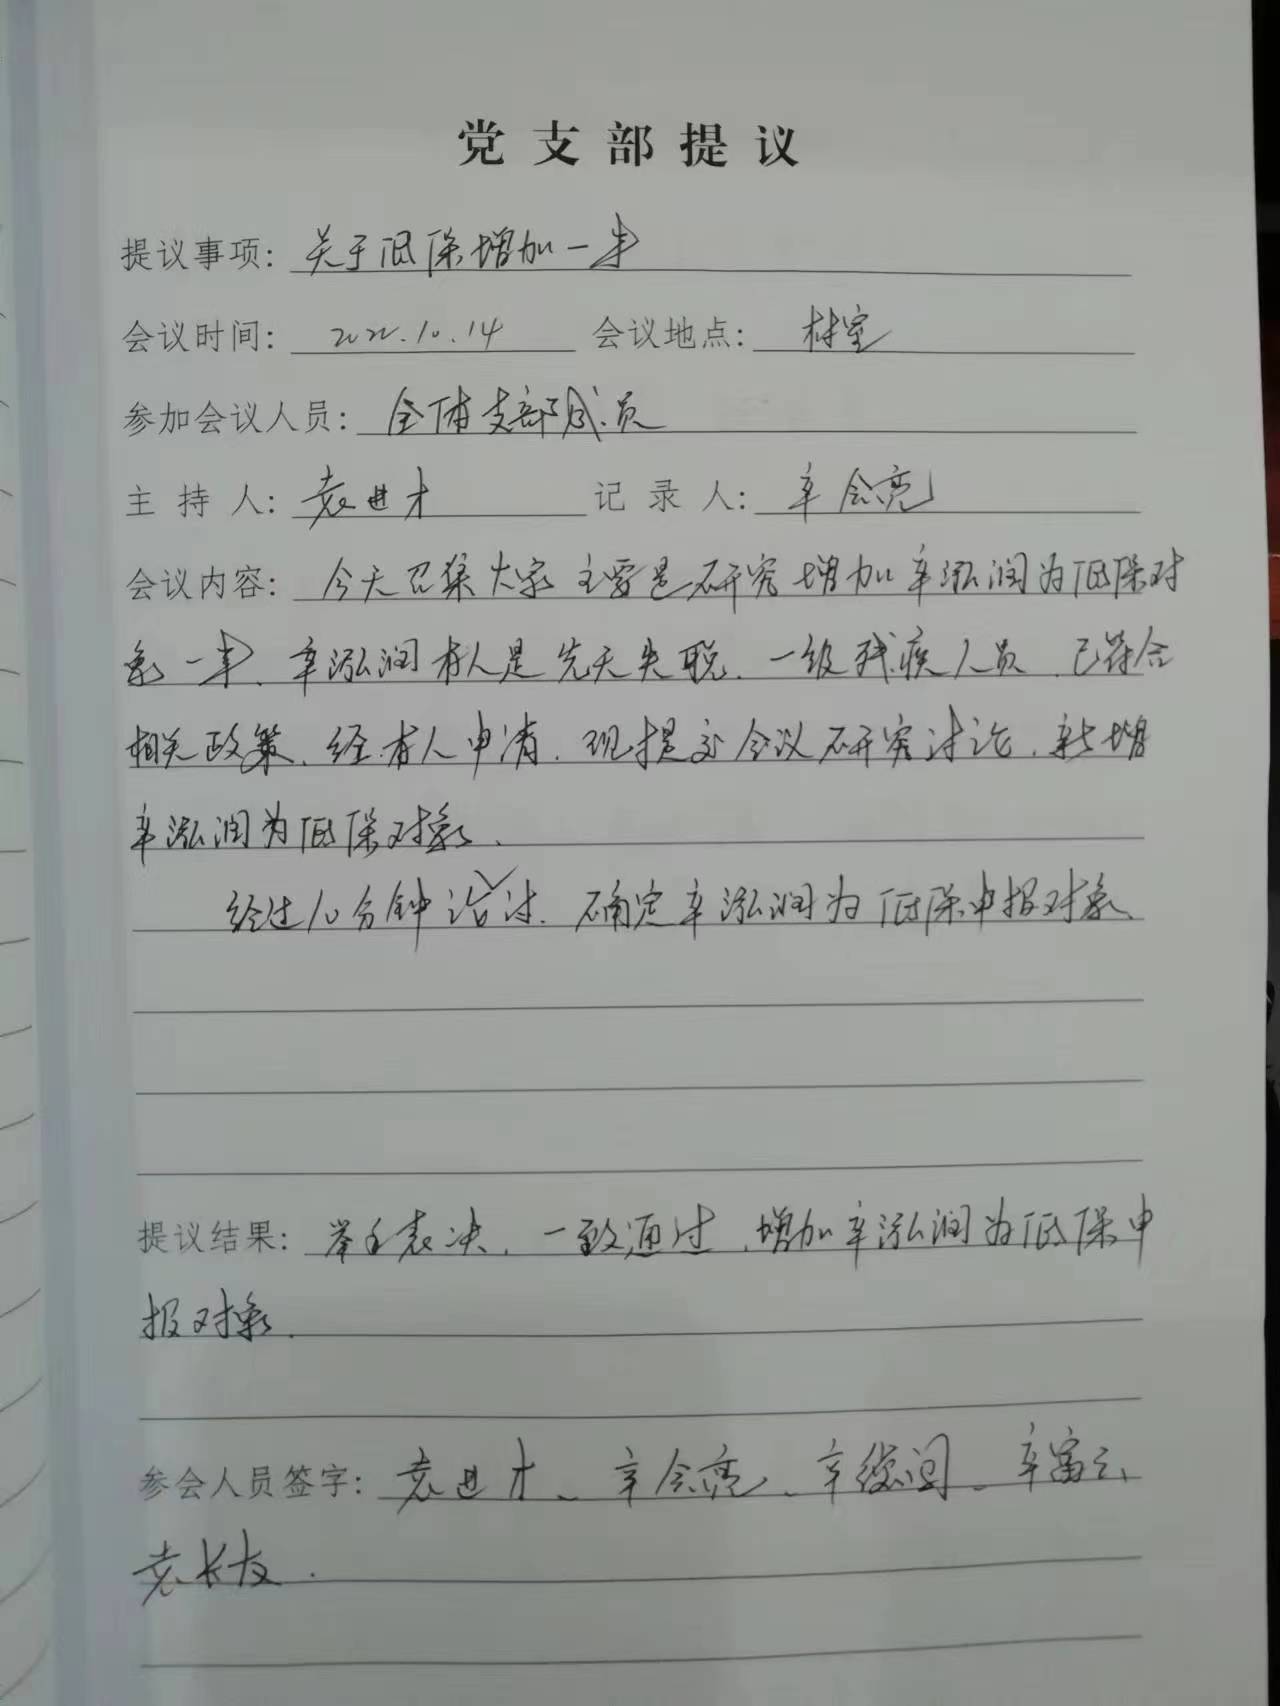 党支部提议
提议事项: 关于低保增加一事
会议时间: 2022.10.14 会议地点: 村室
参加会议人员: 全体支部成员
主持人: 袁进才 记录人: 辛会亮
会议内容: 今天召集大家主要是研究增加辛泓润为低保对
象一事、辛泓润本人是先天失聪、一级残疾人员、已符合
相关政策、经本人申请、现提交会议研究讨论、新增
辛泓润为低保对象、
经过10分钟讨论、确定辛泓润为低保申报对象、
提议结果: 举手表决、一致通过、增加辛泓润为低保申
报对象.
参会人员签字: 袁进才、辛会亮、辛富云、
袁长友.